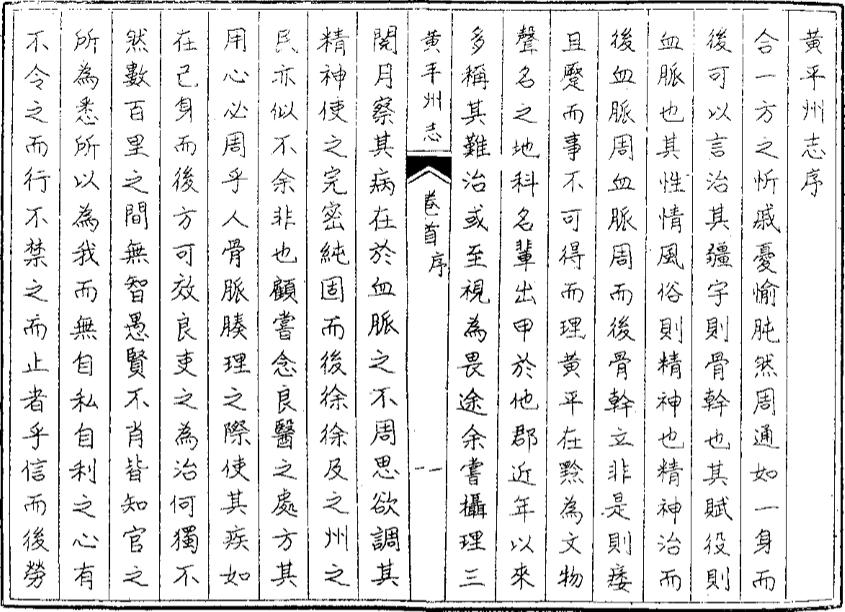 黃平州志序
合一方之忻戚憂愉肫然周通如一身而
後可以言治其疆宇則骨幹也其賦役則
血脈也其性情風俗則精神也精神治而
後血脈周血脈周而後骨幹立非是則痿
且躄而事不可得而理黃平在黔為文物
聲名之地科名輩出甲於他郡近年以來
多稱其難治或至視為畏途余嘗攝理三
黃平州志
卷首序
一
閱月察其病在於血脈之不周思欲調其
精神使之完密純固而後徐徐及之州之
民亦似不余非也顧嘗念良醫之處方其
用心必周乎人骨脈腠理之際使其疾如
在己身而後方可效良吏之為治何獨不
然數百里之間無智愚賢不肖皆知官之
所為悉所以為我而無自私自利之心有
不令之而行不禁之而止者乎信而後勞